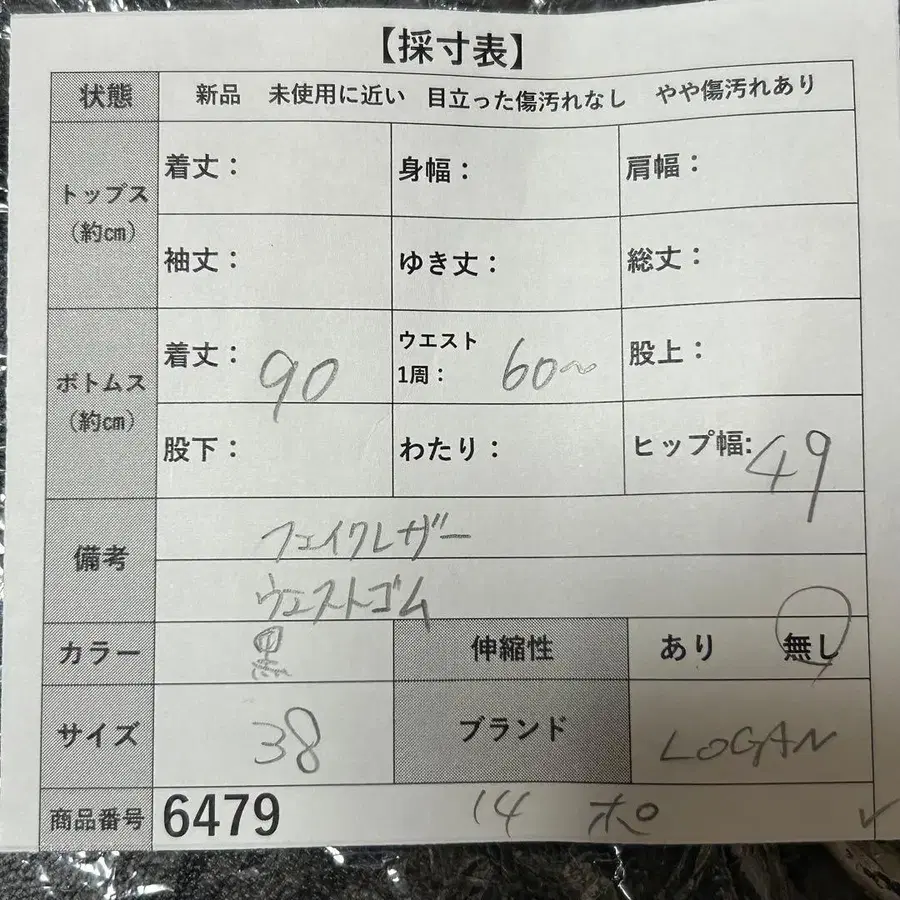 【採寸表】
状態 新品 未使用に近い 目立った傷汚れなし やや傷汚れあり
トップス
(約cm)
着丈： 身幅： 肩幅：
袖丈： ゆき丈： 総丈：
ボトムス
(約cm)
着丈： 90 ウエスト
1周： 60～ 股上：
股下： わたり： ヒップ幅: 49
備考 フェイクレザー
ウエストゴム
カラー 黒 伸縮性 あり 無し
サイズ 38 ブランド LOGAN
商品番号 6479 14 ポ ✓